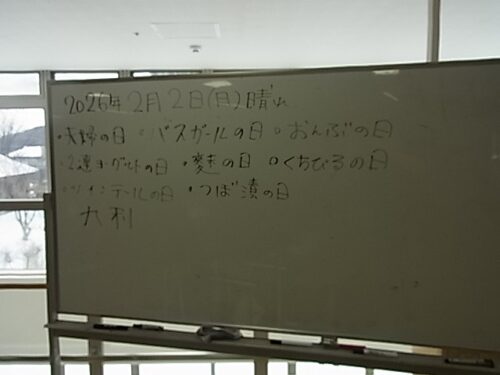 2026年2月2日(月)晴れ
・夫婦の日 ・バスガールの日 ・おんぶの日
・2連ヨーグルトの日 ・麩の日 ・くちびるの日
・ツインテールの日 ・つば漬の日
大利